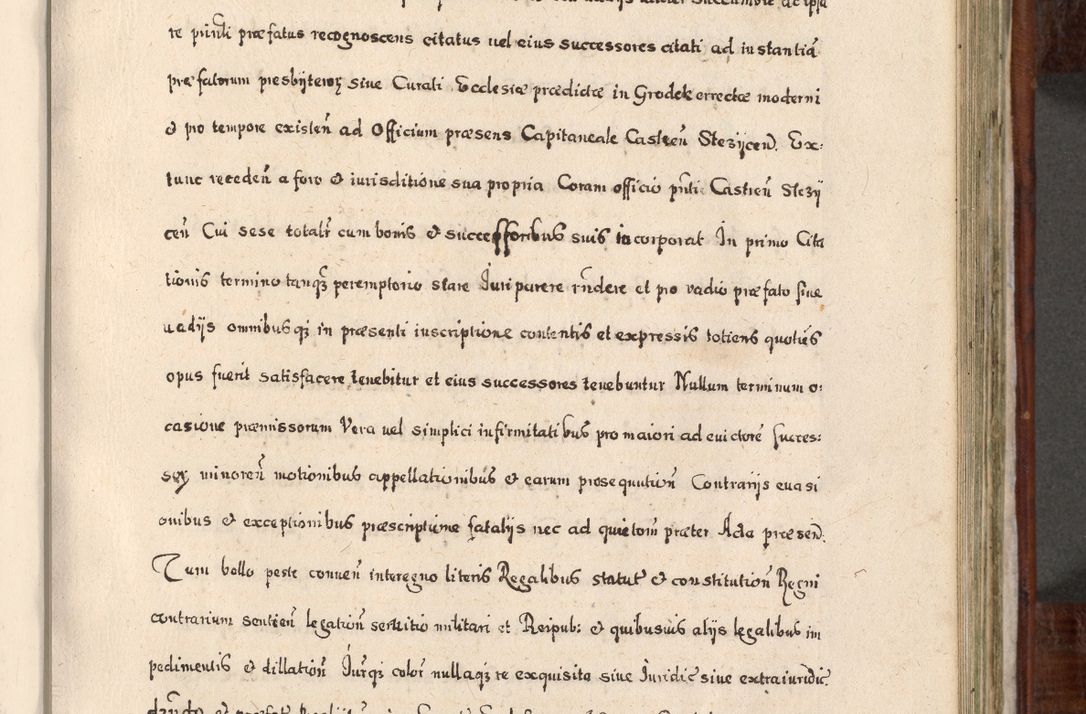 re pñti præfatus recognoscens citatus vel eius successores citati ad instantiã
præfatorum presbÿteroꝝ sive Curati Ecclesiæ prædictæ in Grodek errectæ moderni
& pro tempore existeñ ad Officium præsens Capitaneale Castreñ Stezÿceñ. Ex:
tunc recedeñ a foro & iurisditione sua propria Coram officio pñti Castreñ Stezÿ
ceñ Cui sese totalr̃ cum bonis & successoribus suis incorporat In primo Cita
tionis termino tanqꝫ peremptorio stare Juri parere rñdere et pro vadio præfato sive
vadijs omnibusqꝫ in præsenti inscriptione contentis et expressis totiens quotiẽs
opus fuerit satisfacere tenebitur et eius successores tenebuntur Nullum terminum o:
casione præmissorum Vera vel simplici infirmitatibus pro maiori ad evictorẽ succes:
soꝝ minoreñ motionibus appellationibus & earum prosequutioñ Contrarijs evasi
onibus & exceptionibus præscriptione fatalijs nec ad quietom̃ præter Acta præseñ.
Tum bello peste conveñ interegno literis Regalibus statut̃ & constitutioñ Regni
contrarium sentieñ legatioñ servitio militari et Reipub: & quibusvis alijs legalibus im
pedimentis & dillatioñ Jurq̃ꝫ color̃ nullaqꝫ re exquisito sive Juridic̃ sive extraiuridic̃